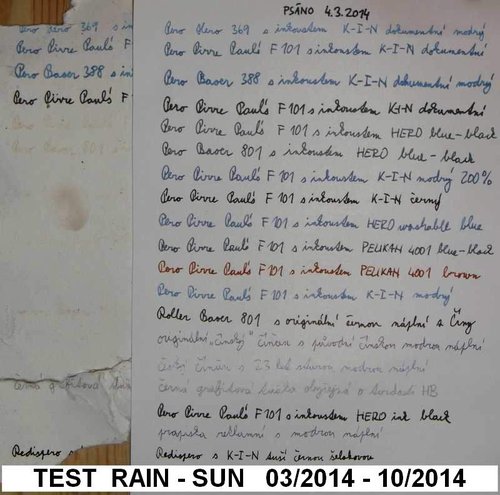 PSÁNO 4.3.2014
Pero Hero 369 s inkoustem K-I-N dokumentní modrý
Pero Pirre Paul's F101 s inkoustem K-I-N dokumentní
Pero Baoer 388 s inkoustem K-I-N dokumentní modrý
Pero Pirre Paul's F101 s inkoustem K-I-N dokumentní
Pero Pirre Paul's F 101 s inkoustem HERO blue-black
Pero Baoer 801 s inkoustem HERO blue-black
Pero Pirre Paul's F 101 s inkoustem K-I-N modrý 200%
Pero Pirre Paul's F 101 s inkoustem K-I-N černý
Pero Pirre Paul's F 101 s inkoustem HERO washable blue
Pero Pirre Paul's F 101 s inkoustem PELIKAN 4001 blue-black
Pero Pirre Paul's F 101 s inkoustem PELIKAN 4001 brown
Pero Pirre Paul's F 101 s inkoustem K-I-N modrý
Roller Baoer 801 s originální černou náplní z Číny
originální "čínský" Číňan s původní čínskou modrou náplní
český Číňan s 23 let starou modrou náplní
černá grafitová tužka o tvrdosti HB
Pero Pirre Paul's F101 s inkoustem HERO ink black
propiska reklamní s modrou náplní
Redispero s K-I-N tuší černou
Pero Hero 369 s in
Pero Pirre Paul's F
Pero Baoer 388 s in
Pero Pirre Paul's F
Pero Baoer 801
černá grafitová
Redispero s
TEST RAIN - SUN 03/2014 - 10/2014